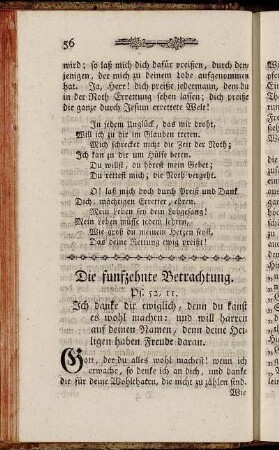 56
wird; so laß mich dich dafür preißen, durch den-
jenigen, der mich zu deinem Lobe aufgenommen
hat. Ja, Herr! dich preiße jedermann, dem du
in der Noth Errettung sehen lassen; dich preiße
die ganze durch Jesum errettete Welt!
In jedem Unglück, das mir droht,
Will ich zu dir im Glauben treten.
Mich schrecket nicht die Zeit der Noth;
Ich kan zu dir um Hülfe beten.
Du willst, du hörest mein Gebet;
Du rettest mich; die Noth vergeht.
O! laß mich doch durch Preiß und Dank
Dich, mächtigen Erretter, ehren.
Mein Leben sey dein Lobgesang!
Mein Leben müsse jedem lehren,
Wie groß du meinem Herzen seyst,
Das deine Rettung ewig preist!
Die funfzehnte Betrachtung.
Ps. 52, 11.
Ich danke dir ewiglich, denn du kanst
es wohl machen: und will harren
auf deinen Namen, denn deine Hei-
ligen haben Freude daran.
Gott, der du alles wohl machest! wenn ich
erwache, so denke ich an dich, und danke
dir für deine Wohlthaten, die nicht zu zählen sind.
Wie